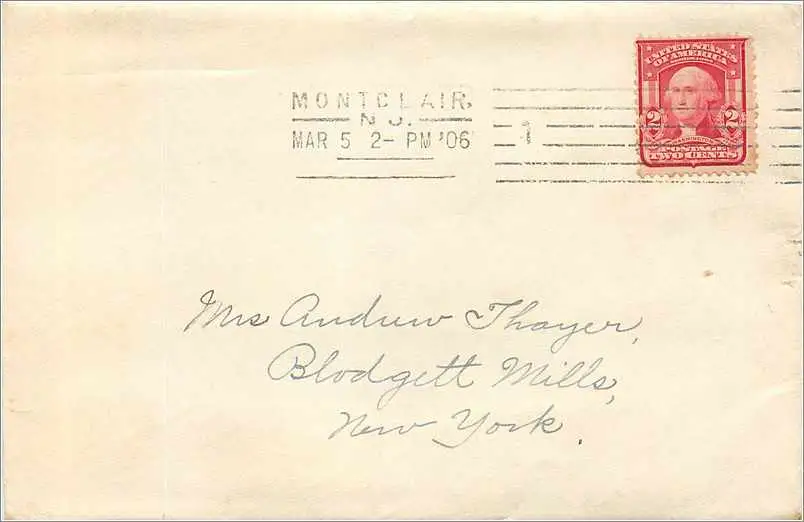 MONTCLAIR,
N.J.
MAR 5 2- PM '06
1
UNITED STATES
OF AMERICA
2 2
WASHINGTON
POSTAGE
TWO CENTS
Mrs Andrew Thayer,
Blodgett Mills,
New York.